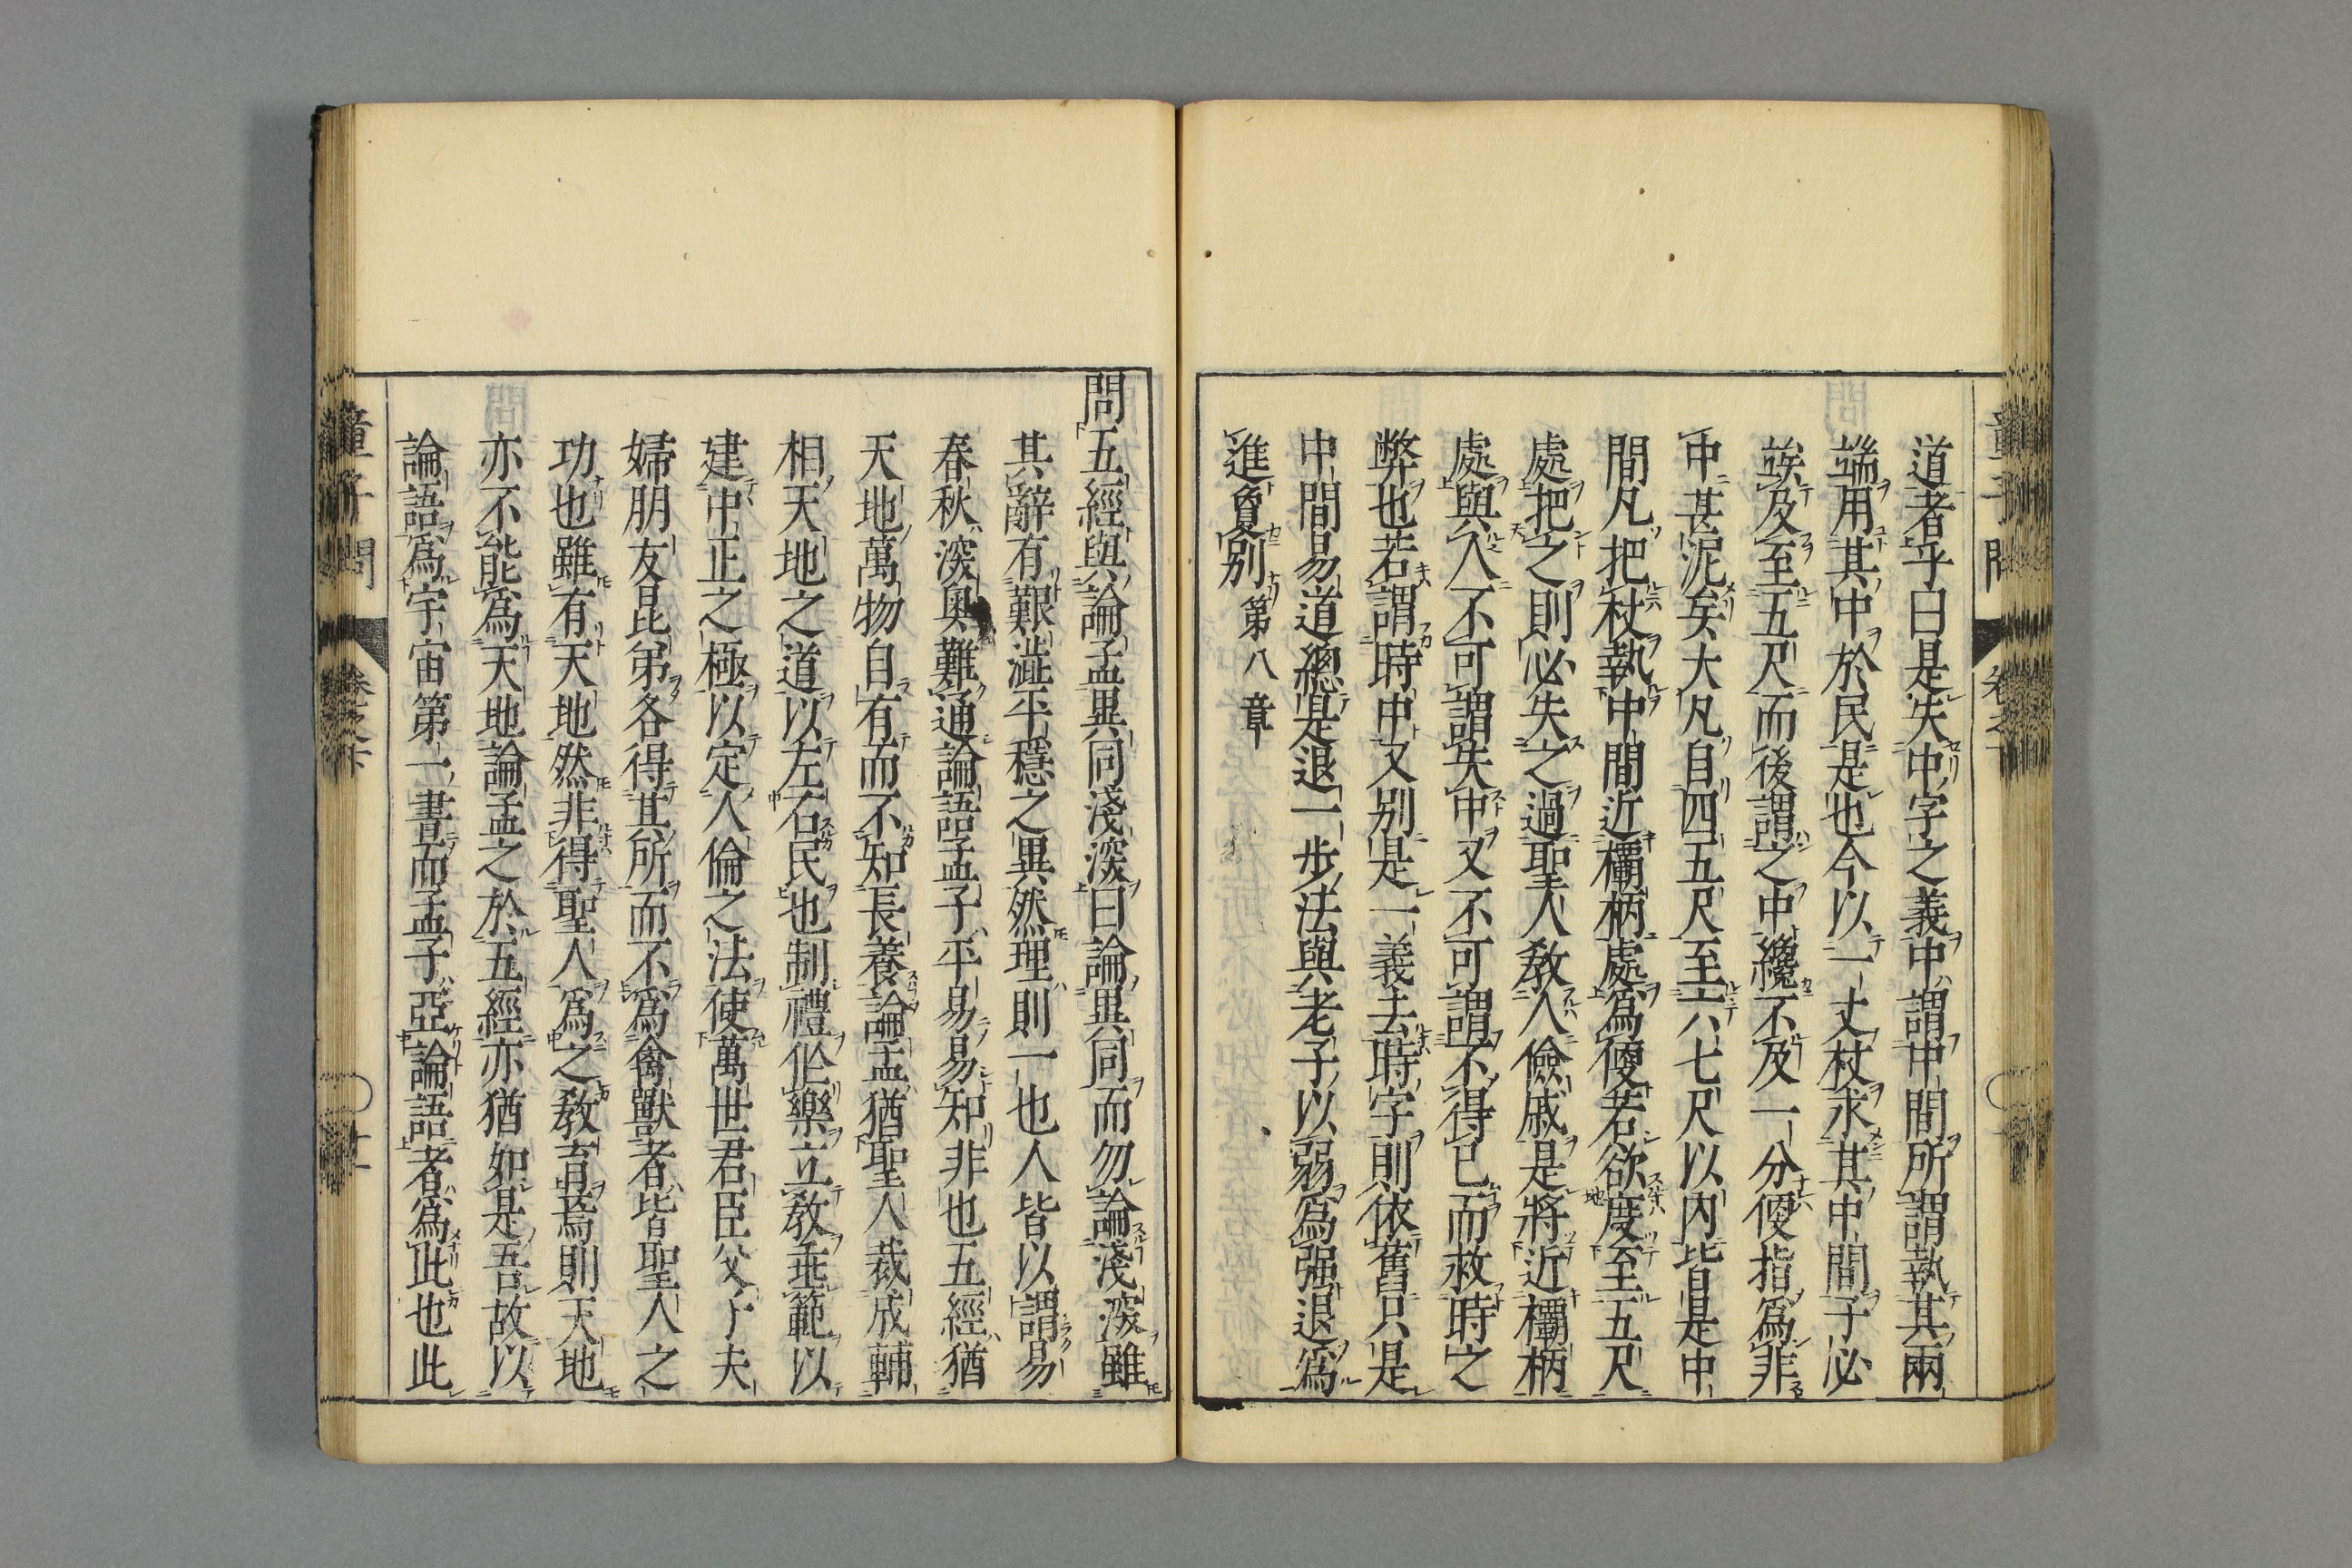 道者乎曰是失中字之義中謂中間所謂執其兩
端用其中於民是也今以一丈杖求其中間子必
竢及至五尺而後謂之中纔不及一分便指爲非
中甚泥矣大凡自四五尺至六七尺以內皆是中
間凡把杖執中間近欛柄處爲便若欲度至五尺
處把之則必失之過聖人教人儉戚是將近欛柄
處與人不可謂失中又不可謂不得已而救時之
弊也若謂時中又別是一義去時字則依舊只是
中間易道總是退一步法與老子以弱爲强退爲
進敻別第八章
童子問
問五經與論孟異同淺深曰論異同而勿論淺深雖
其辭有艱澁平穩之異然理則一也人皆以謂易
春秋深奧難通論語孟子平易易知非也五經猶
天地萬物自有而不知長養論孟猶聖人裁成輔
相天地之道以左右民也制禮作樂立教垂範以
建中正之極以定人倫之法使萬世君臣父子夫
婦朋友昆弟各得其所而不爲禽獸者皆聖人之
功也雖有天地然非得聖人爲之教育焉則天地
亦不能爲天地論孟之於五經亦猶如是吾故以
論語爲宇宙第一書而孟子亞論語者爲此也此
童子問 卷之下